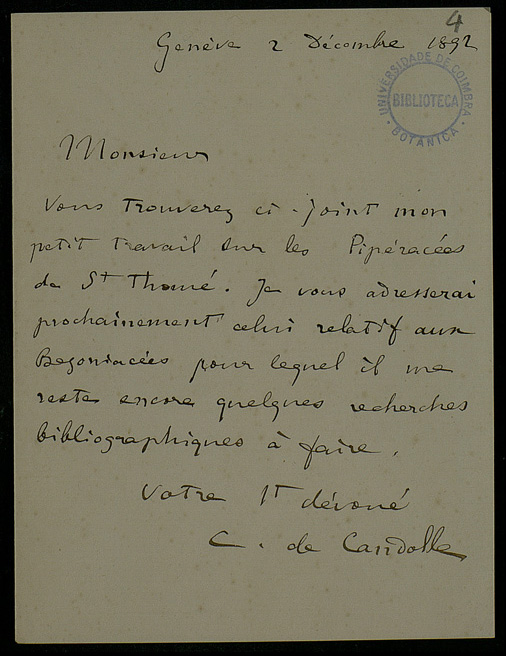 4
Genève 2 Décembre 1892
UNIVERSIDADE DE COIMBRA
BIBLIOTECA
BOTANICA
Monsieur
Vous trouverez ci-joint mon
petit travail sur les Pipéracées
de St Thomé. Je vous adresserai
prochainement celui relatif aux
Begoniacées pour lequel il me
reste encore quelques recherches
bibliographiques à faire.
Votre tt dévoué
C. de Candolle